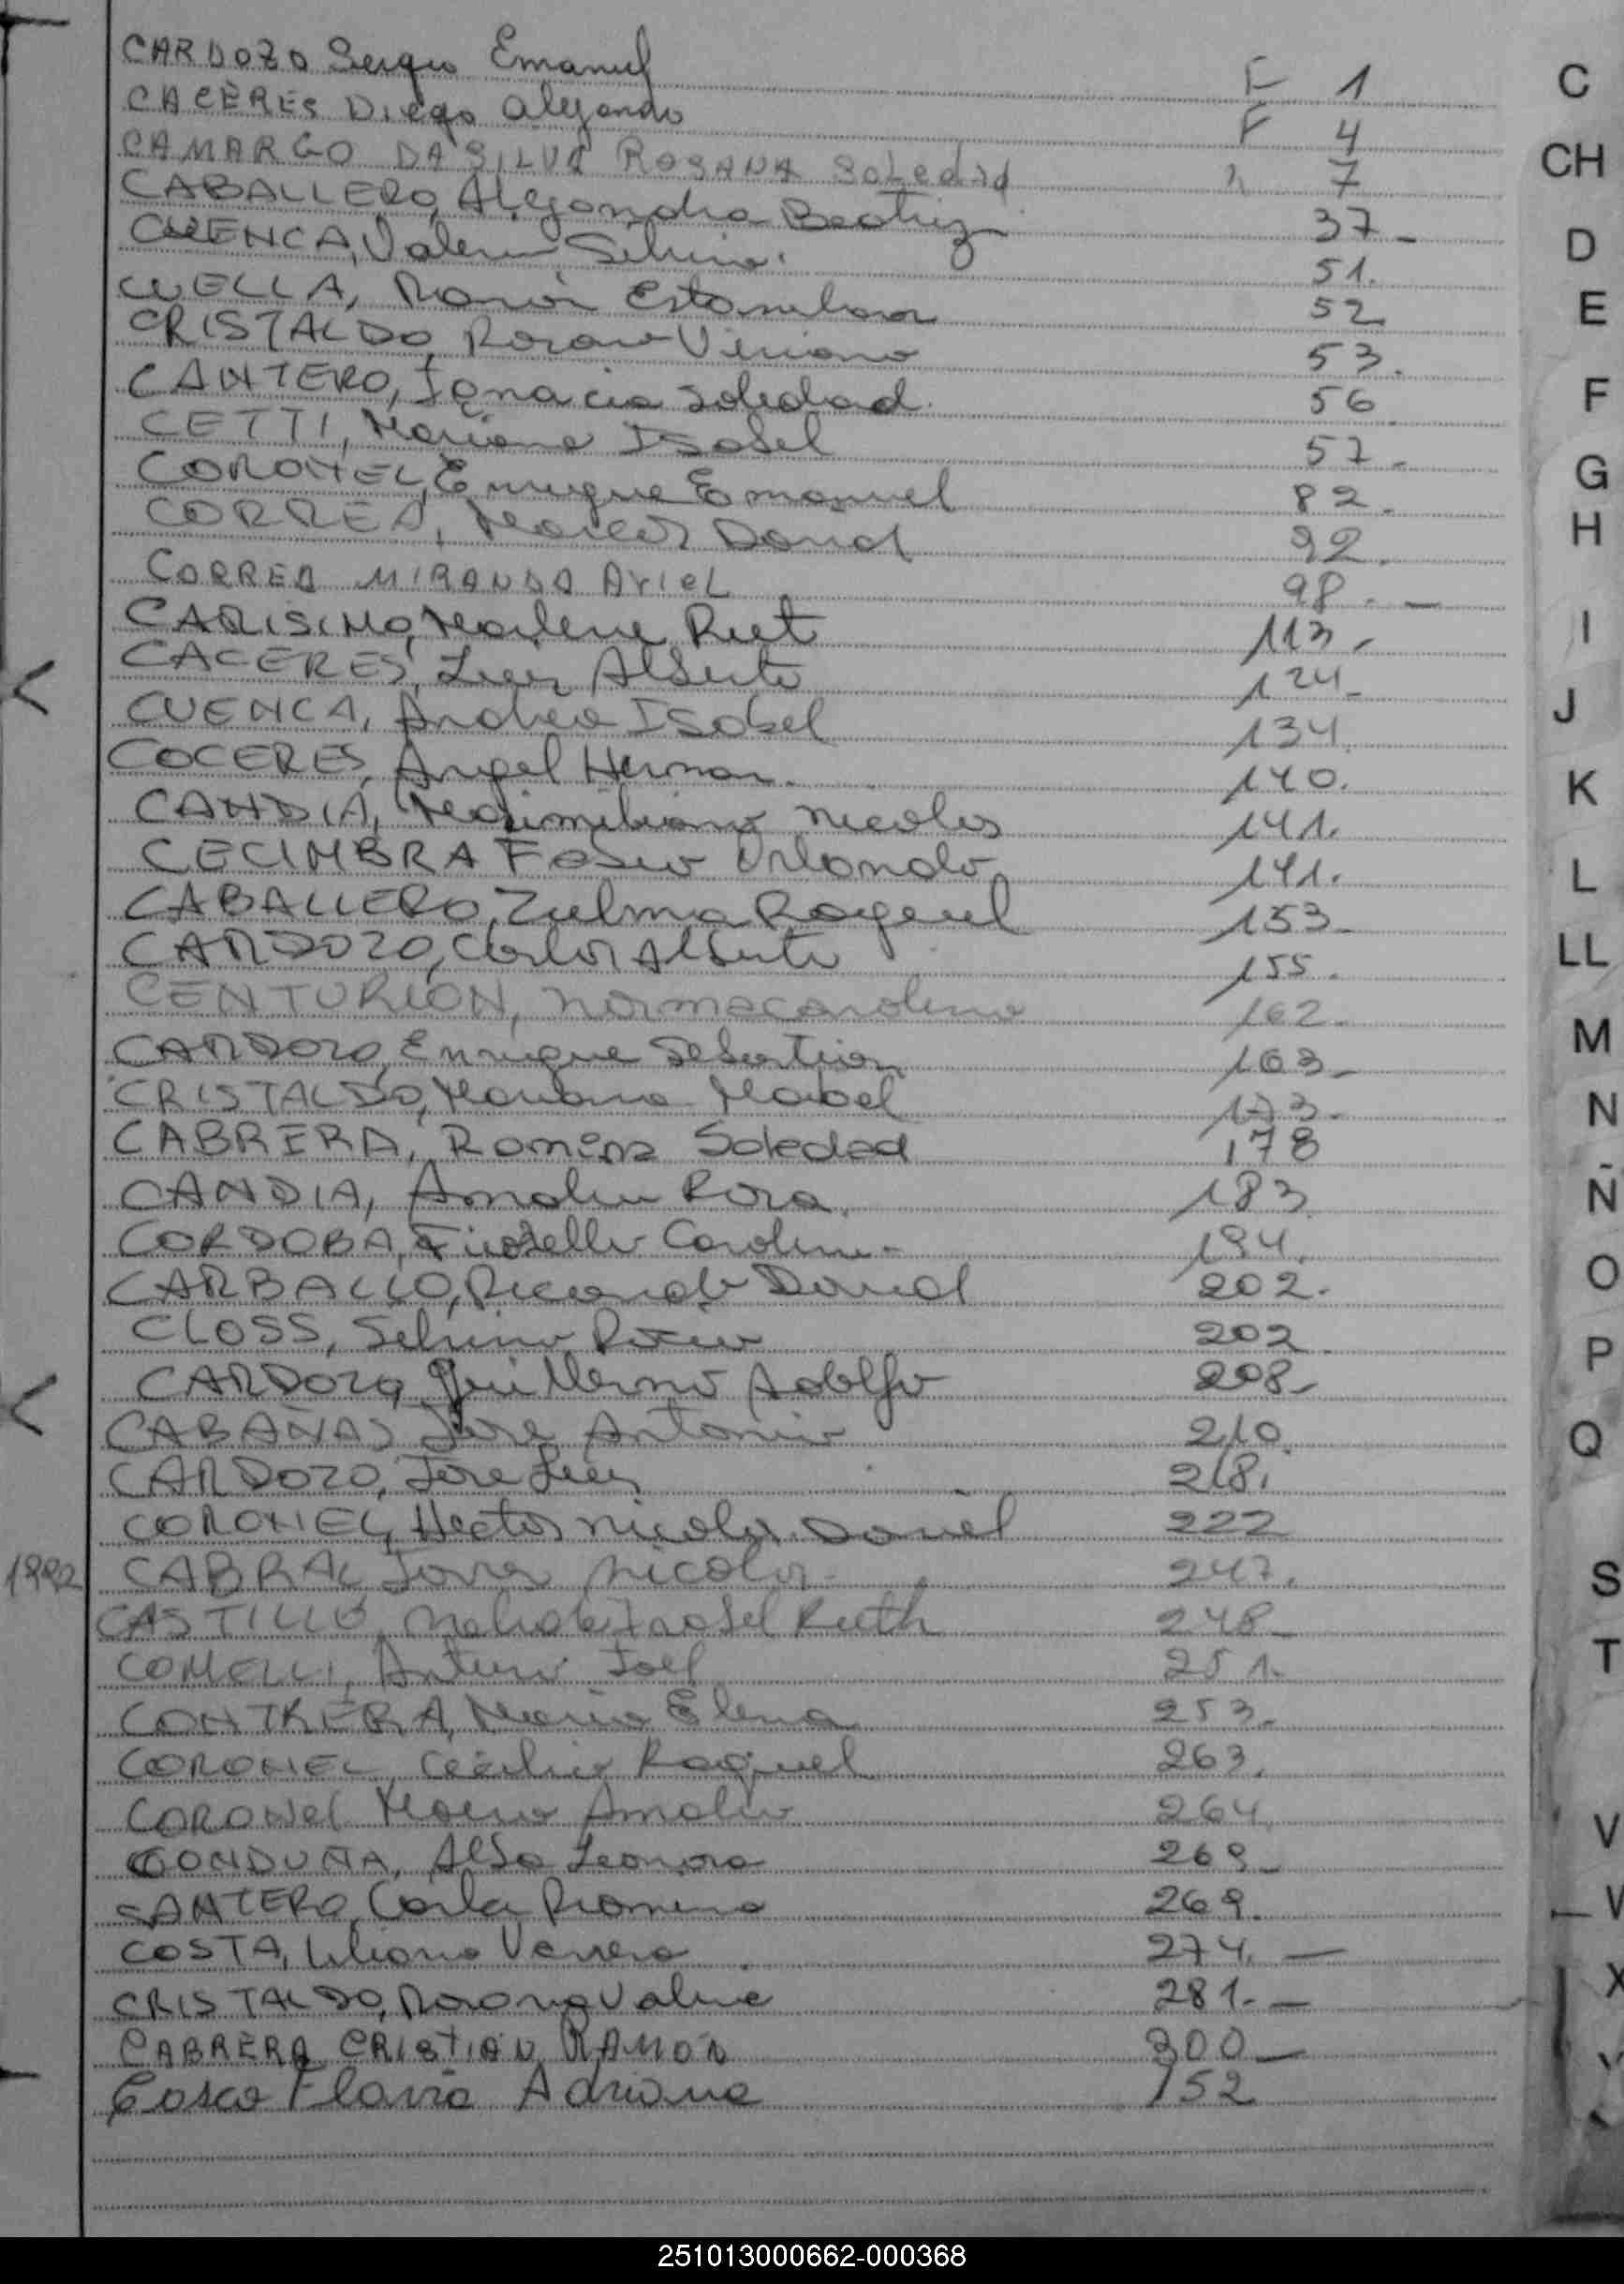 CARDOZO Sergio Emanuel F 1
CACÈRES Diego Alejandro F 4
CAMARGO DA SILVA ROSANA SOLEDAD " 7
CABALLERO, Alejandra Beatriz 37-
CUENCA, Valeria Silvina. 51.
CUELLA, Ramón Estanislao 52
CRISTALDO, Rosana Viviana 53.
CANTERO, Ignacia Soledad. 56
CETTI, Mariana Isabel 57-
CORONEL, Enrique Emanuel 82.
CORREA, Marcos David 92.
CORREA MIRANDA ARIEL 98. -
CARISIMO, Marlene Rut 113-
CACERES, Luis Alberto 124-
CUENCA, Andrea Isabel 134.
COCERES, Angel Hernan. 140.
CANDIA, Maximiliano Nicolas 141.
CECIMBRA Fabio Orlando 141.
CABALLERO, Zulma Raquel 153-
CARDOZO, Carlos Alberto 155.
CENTURION, Norma Carolina 162-
CARDOZO, Enrique Sebastian 163-
CRISTALDO, Mariana Mabel 173-
CABRERA, Romina Soledad 178
CANDIA, Amalia Rosa. 183.
CORDOBA, Fiorella Carolina- 194.
CARBALLO, Ricardo David 202-
CLOSS, Silvina Rocio 202
CARDOZO, Guillermo Adolfo 208-
CABAÑAS Jose Antonio 210.
CARDOZO, Jose Luis 218.
CORONEL, Hector Nicolas Daniel 222
1992 CABRAL Nicolas- 247.
CASTILLO, Isabel Ruth 248-
COMELLI, Arturo Joel 251-
CONTRERA, Maria Elena 253-
CORONEL, Cecilia Raquel 263.
CORONEL Maria Amalia 264.
CONDUÑA, Alba Leonora 269-
CANTERO, Carla Romina 269.
COSTA, Liliana Vanesa 274. -
CRISTALDO, Rosana Valeria 281- -
CABRERA CRISTIAN RAMÓN 300-
Cosco Flavia Adriana 152
C
CH
D
E
F
G
H
I
J
K
L
LL
M
N
Ñ
O
P
Q
S
T
V
X
251013000662-000368